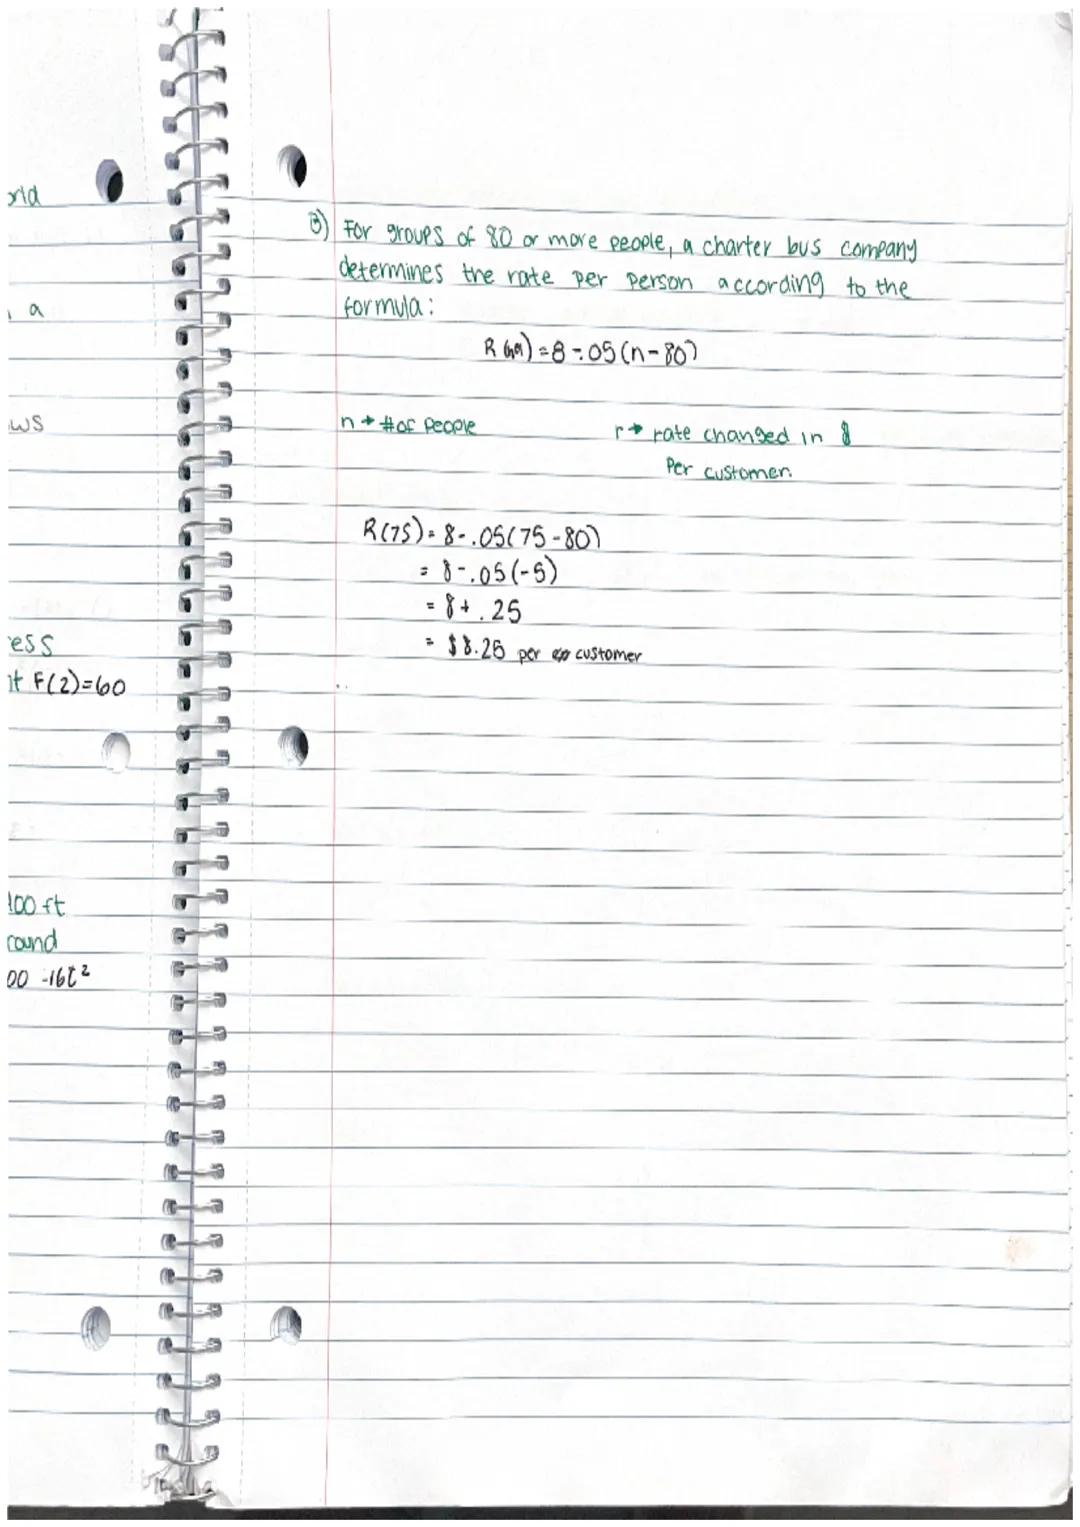 orld
a
ws
ess
t F(2)=60
100 ft
round
00 -16t²
3) For groups of 80 or more people, a charter bus company
determines the rate per person according to the
formula:
=8-.05(n-80)
n → #of people r→ rate changed in $
Per customer.
R(75)= 8-.05(75-80)
= 8-.05(-5)
= 8+.25
= $8.25 per customer